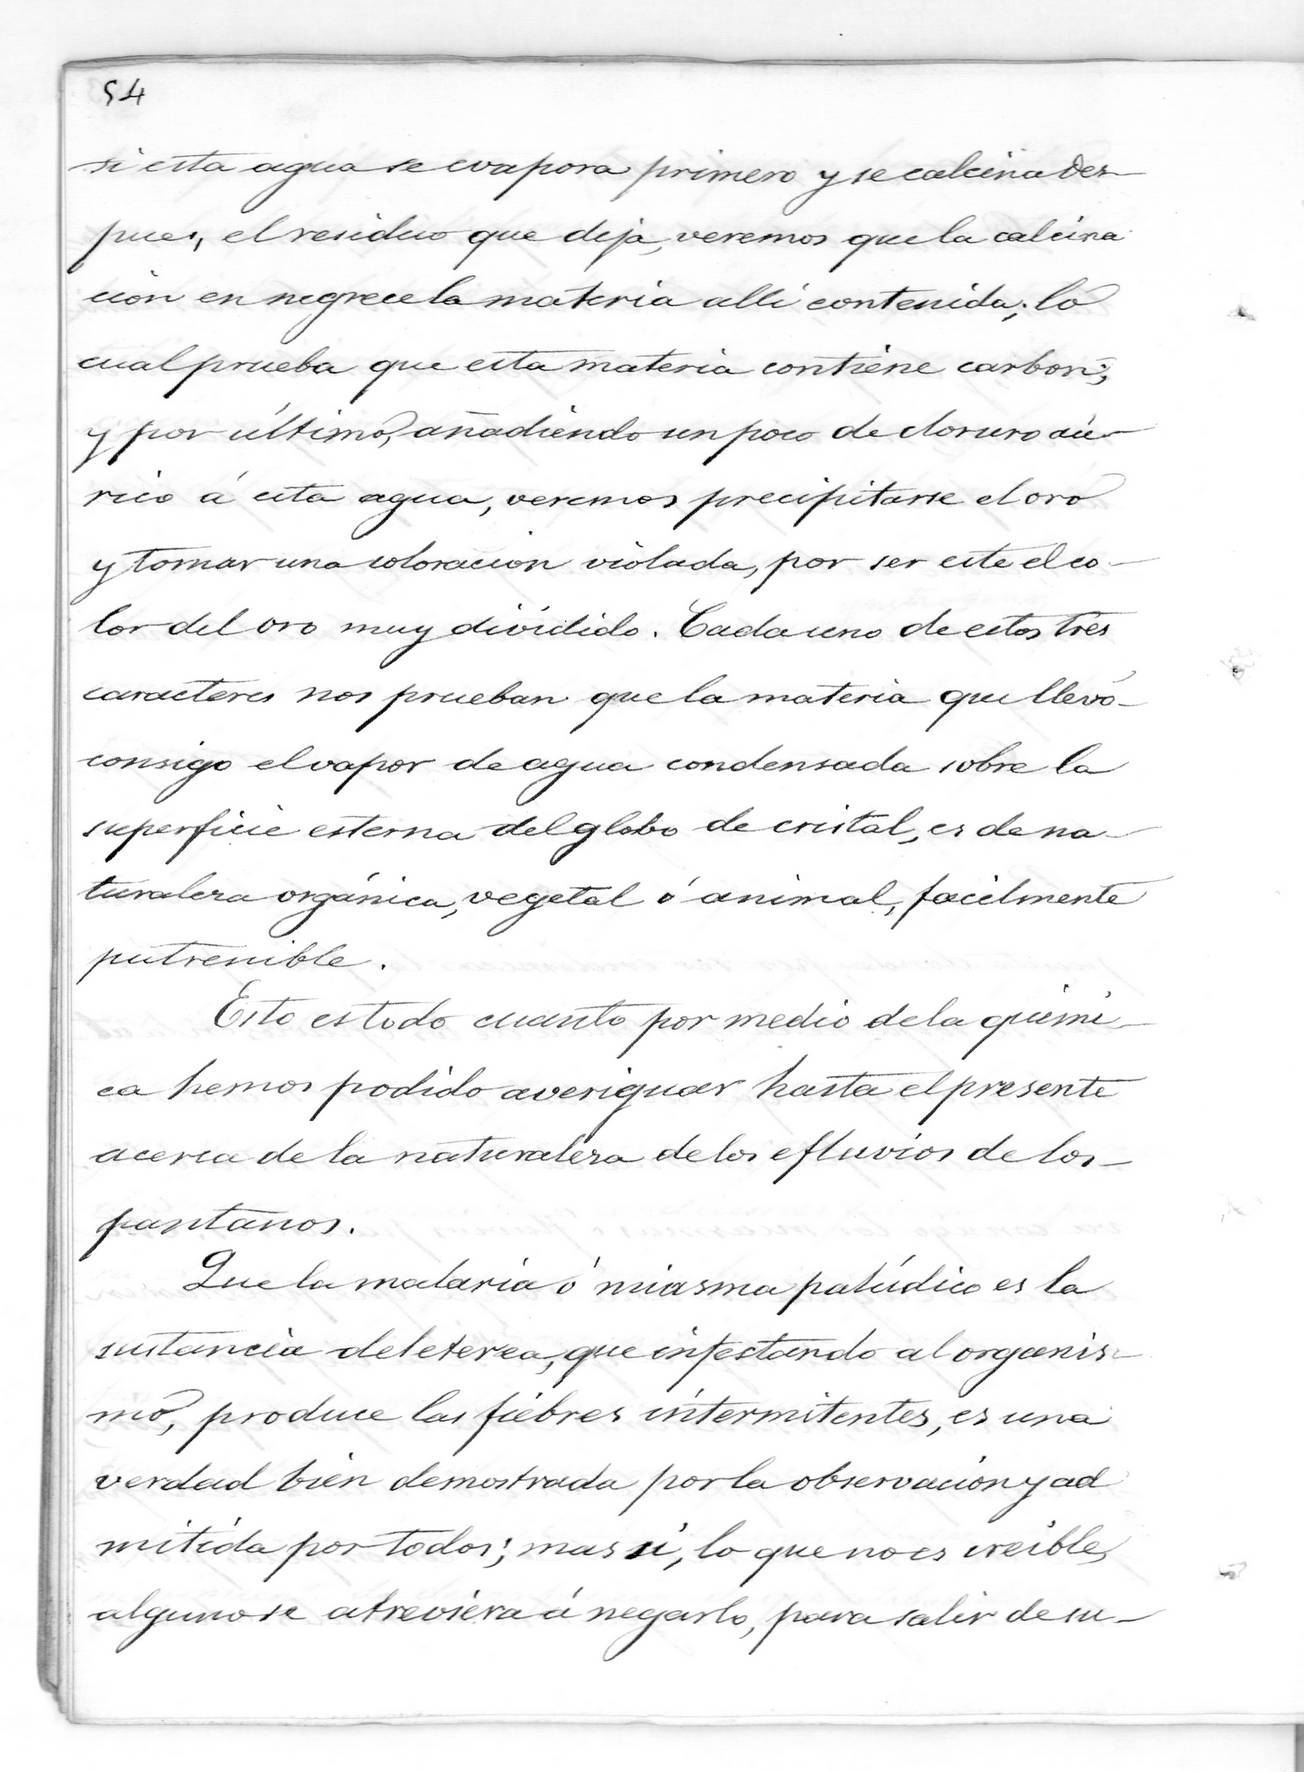 54
si esta agua se evapora primero y se calcina des-
pues, el residuo que deja, veremos que la calcina
ción en negrece la materia alli contenida; lo
cual prueba que esta materia contiene carbon;
y por último, añadiendo un poco de cloruro áu-
rico á esta agua, veremos precipitarse el oro
y tomar una coloracion violada, por ser este el co-
lor del oro muy dividido. Cada uno de estos tres
caracteres nos prueban que la materia que llevó-
consigo el vapor de agua condensada sobre la
superficie esterna del globo de cristal, es de na-
turaleza orgánica, vegetal ó animal, facilmente
putrenible.
Esto es todo cuanto por medio de la quimi-
ca hemos podido averiguar hasta el presente
acerca de la naturaleza de los efluvios de los-
pantanos.
Que la malaria ó miasma palúdico es la
sustancia deleterea, que infestando al organis-
mo, produce las fiebres intermitentes, es una
verdad bien demostrada por la observacion y ad
mitida por todos; mas si, lo que no es creible,
alguno se atreviera á negarlo, para salir de su-